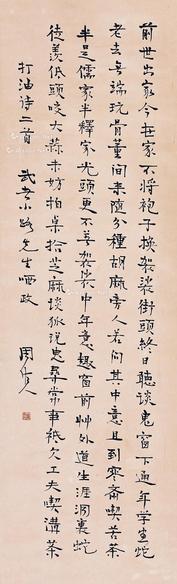 前世出家今在家不將袍子換袈裟街頭終日聽談鬼窗下通年學畫蛇
老去無端玩骨董閒來隨分種胡麻旁人若問其中意且到寒齋喫苦茶
半是儒家半釋家光頭更不著袈裟中年意趣窗前艸外道生涯洞裏蛇
徒羨低頭咬大蒜未妨拍桌拾芝麻談狐說鬼尋常事祗欠工夫喫講茶
打油詩二首 武者小路先生哂政
周作人